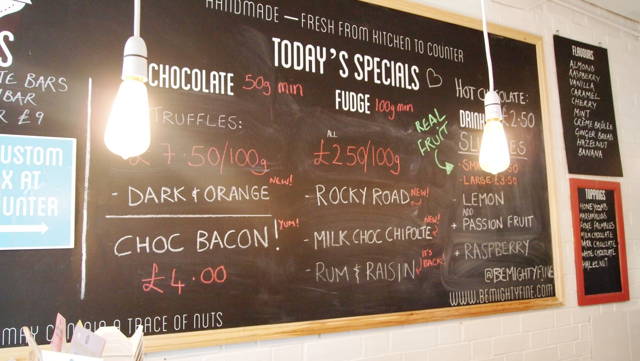 HANDMADE — FRESH FROM KITCHEN TO COUNTER
TODAY'S SPECIALS
BARS
BAR
£9
CUSTOM
AT
COUNTER
MAY A TRACE OF NUTS
CHOCOLATE 50g min
TRUFFLES:
£7.50/100g
- DARK & ORANGE NEW!
CHOC BACON! YUM!
£4.00
FUDGE 100g min
ALL
£2.50/100g
- ROCKY ROAD NEW!
- MILK CHOC CHIPOTLE NEW!
- RUM & RAISIN IT'S BACK!
HOT CHOCOLATE:
£2.50
REAL
FRUIT
- LARGE £3.50
- LEMON
AND
+ PASSION FRUIT
+ RASPBERRY
@BEMIGHTYFINE
WWW.BEMIGHTYFINE.COM
FLAVOURS
ALMOND
RASPBERRY
VANILLA
CARAMEL
CHERRY
MINT
CRÈME BRÛLÉE
GINGER BREAD
HAZELNUT
BANANA
TOPPINGS
HONEYCOMB
MARSHMALLOWS
MILK CHOCOLATE
DARK CHOCOLATE
WHITE CHOCOLATE
HAZELNUT